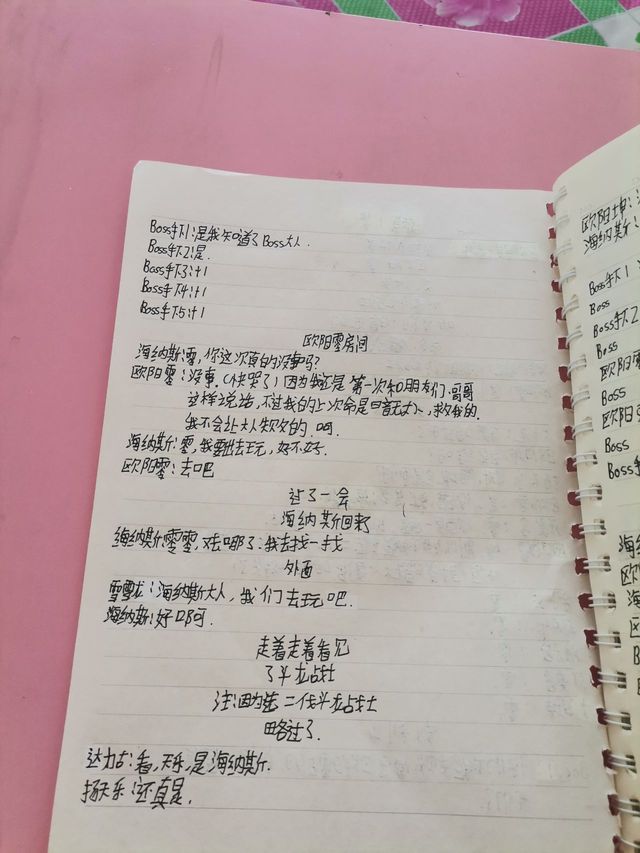 Boss手下1:是我知道了Boss大人.
Boss手下2:是.
Boss手下3:+1
Boss手下4:+1
Boss手下5:+1
欧阳零房间
海纳斯:零,你这次真的没事吗?
欧阳零:没事.(快哭了)因为我还是第一次和朋友们.哥哥
这样说话,不过我的上次命是暗大人,救我的.
我不会让大人失望的.呵.
海纳斯:零,我要出去玩,好不好.
欧阳零:去吧
过了一会
海纳斯回来了
海纳斯:零零,又去哪了.我去找一找
外面
雪雪龙:海纳斯大人,我们去玩吧.
海纳斯:好啊呵.
走着走着看见
了斗龙战士
注:因为第二代斗龙战士
略过了.
达力古:看,天乐,是海纳斯.
扬天乐:还真是.
欧阳坤:
海纳斯:
Boss手下1:
Boss
Boss手下2
Boss
欧阳零
Boss
欧阳零
Boss
Boss手
海纳斯
欧阳
海
欧